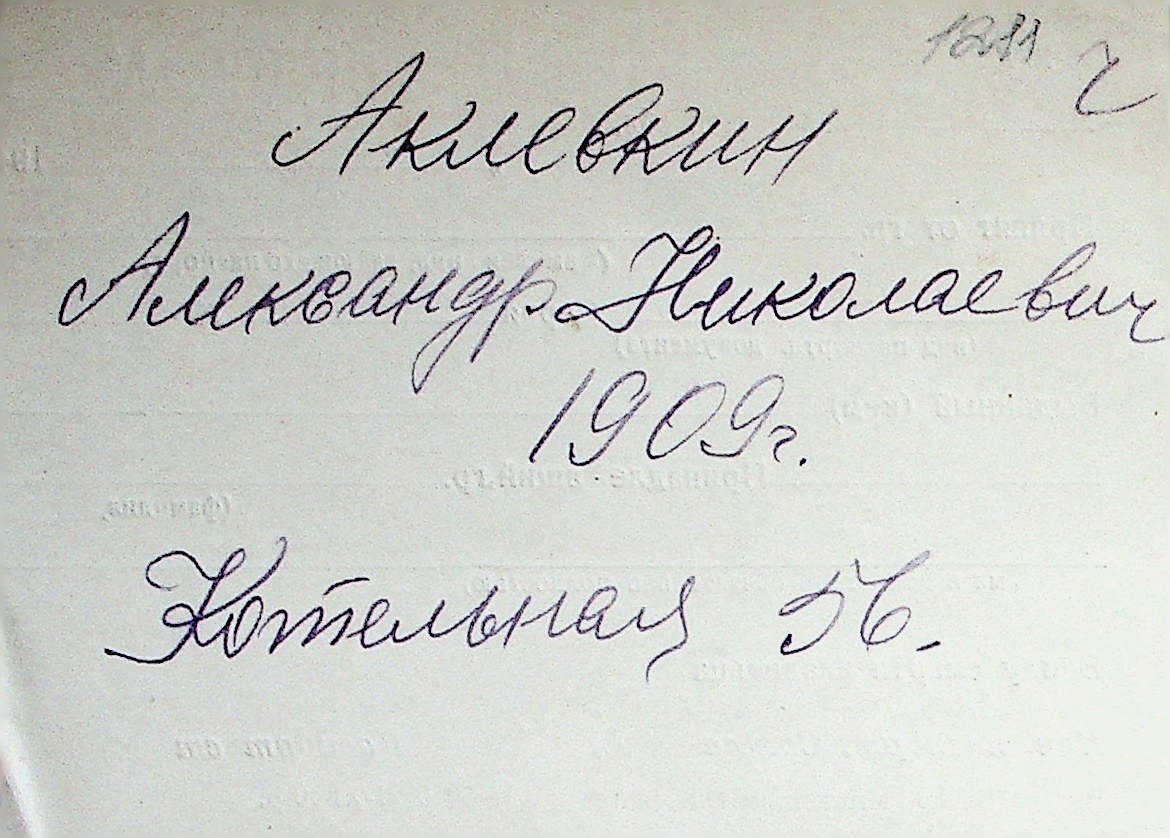 1281 г
Аклевкин
Александр Николаевич
1909 г.
Котельная 56.